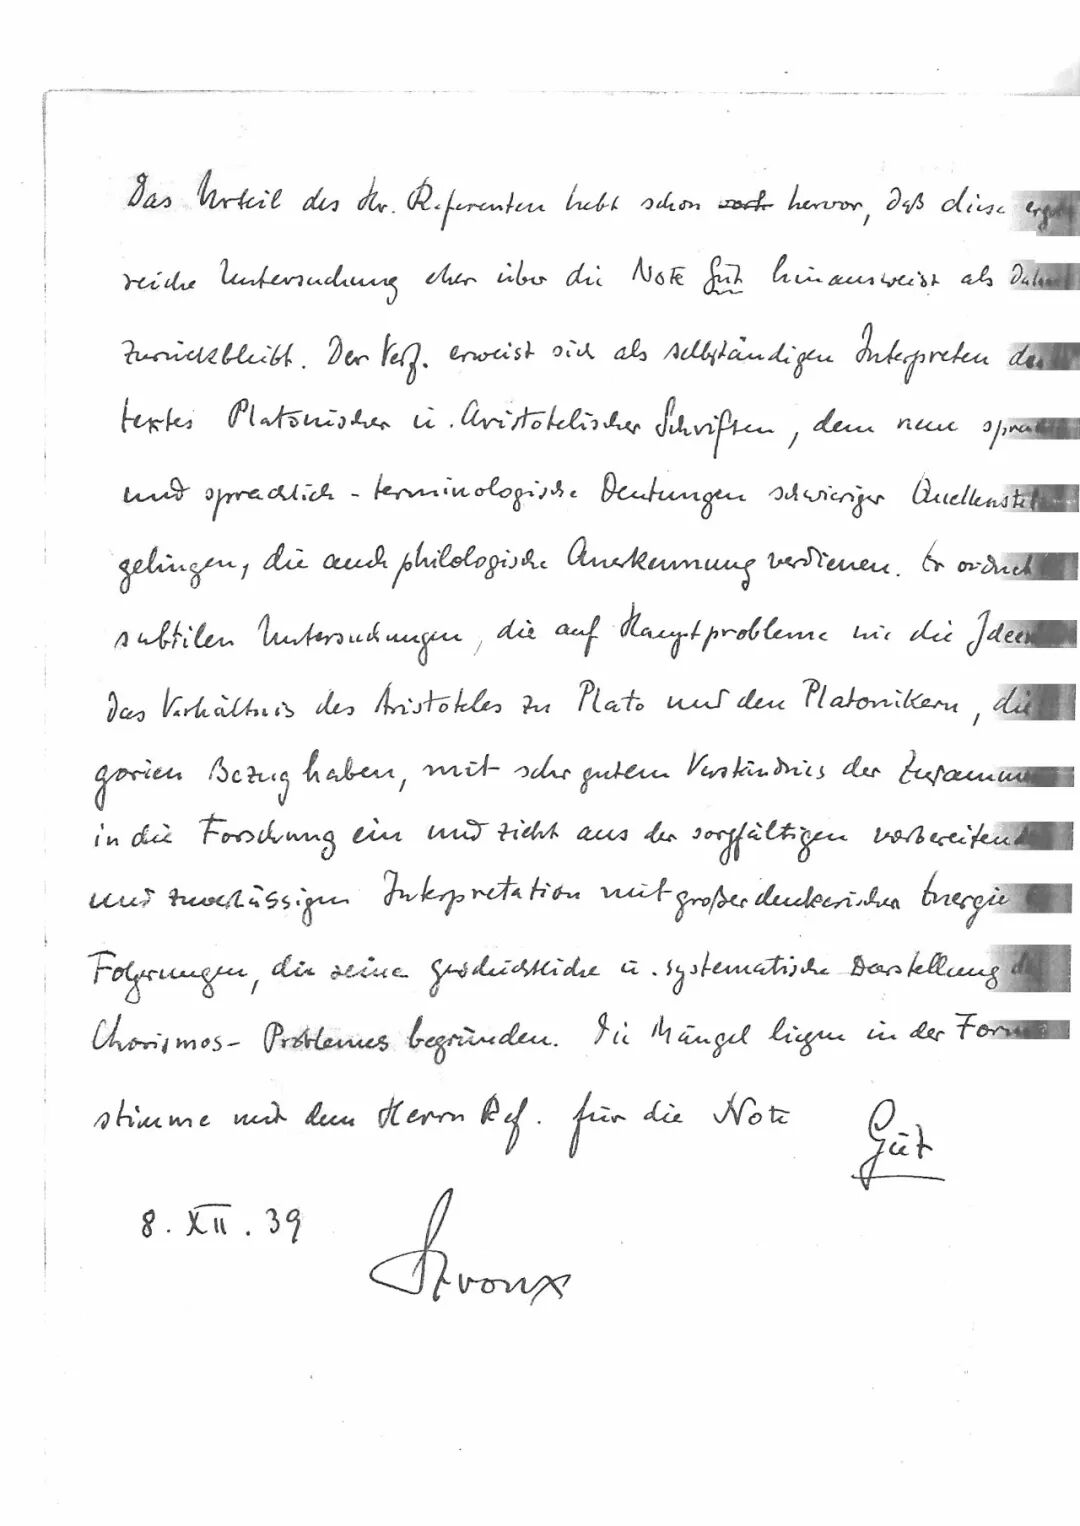 Das Urteil des Hr. Referenten hebt schon hervor, daß diese
reiche Untersuchung eher über die Note Gut hinausweist als
zurückbleibt. Der Verf. erweist sich als selbständigen Interpreten
textes Platonischer u. Aristotelischer Schriften, dem neue
und sprachlich-terminologische Deutungen schwieriger
gelingen, die auch philologische Anerkennung verdienen. Er ordnet
subtilen Untersuchungen, die auf Hauptprobleme wie die
das Verhältnis des Aristoteles zu Plato und den Platonikern, die
gorien Bezug haben, mit sehr gutem Verständnis der
in die Forschung ein und zieht aus der sorgfältigen
und zuverlässigen Interpretation mit großer denkerischer Energie
Folgerungen, die seine geschichtliche u. systematische Darstellung
Chorismos-Problemes begründen. Die Mängel liegen in der
stimme mit dem Herrn Ref. für die Note Gut
8. XII. 39
Stroux